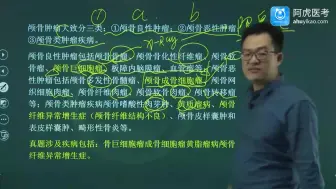 阿虎医考
ahuyikao.com
① a b
X-Ray
颅骨肿瘤大致分三类：①颅骨良性肿瘤；②颅骨恶性肿瘤；
③颅骨类肿瘤疾病。
颅骨良性肿瘤包括颅骨骨瘤、颅骨骨化性纤维瘤、颅骨软
骨瘤、颅骨巨细胞瘤、板障内脑膜瘤、血管瘤等；颅骨恶
性肿瘤包括颅骨多发性骨髓瘤、颅骨成骨细胞瘤、颅骨网
织细胞肉瘤、颅骨纤维肉瘤、颅骨软骨肉瘤、颅骨转移瘤
等；颅骨类肿瘤疾病颅骨嗜酸性肉芽肿、黄脂瘤病、颅骨
纤维异常增生症（颅骨纤维结构不良）、颅骨皮样囊肿和
表皮样囊肿、畸形性骨炎等。
真题涉及疾病包括：骨巨细胞瘤成骨细胞瘤黄脂瘤病颅骨
纤维异常增生症。